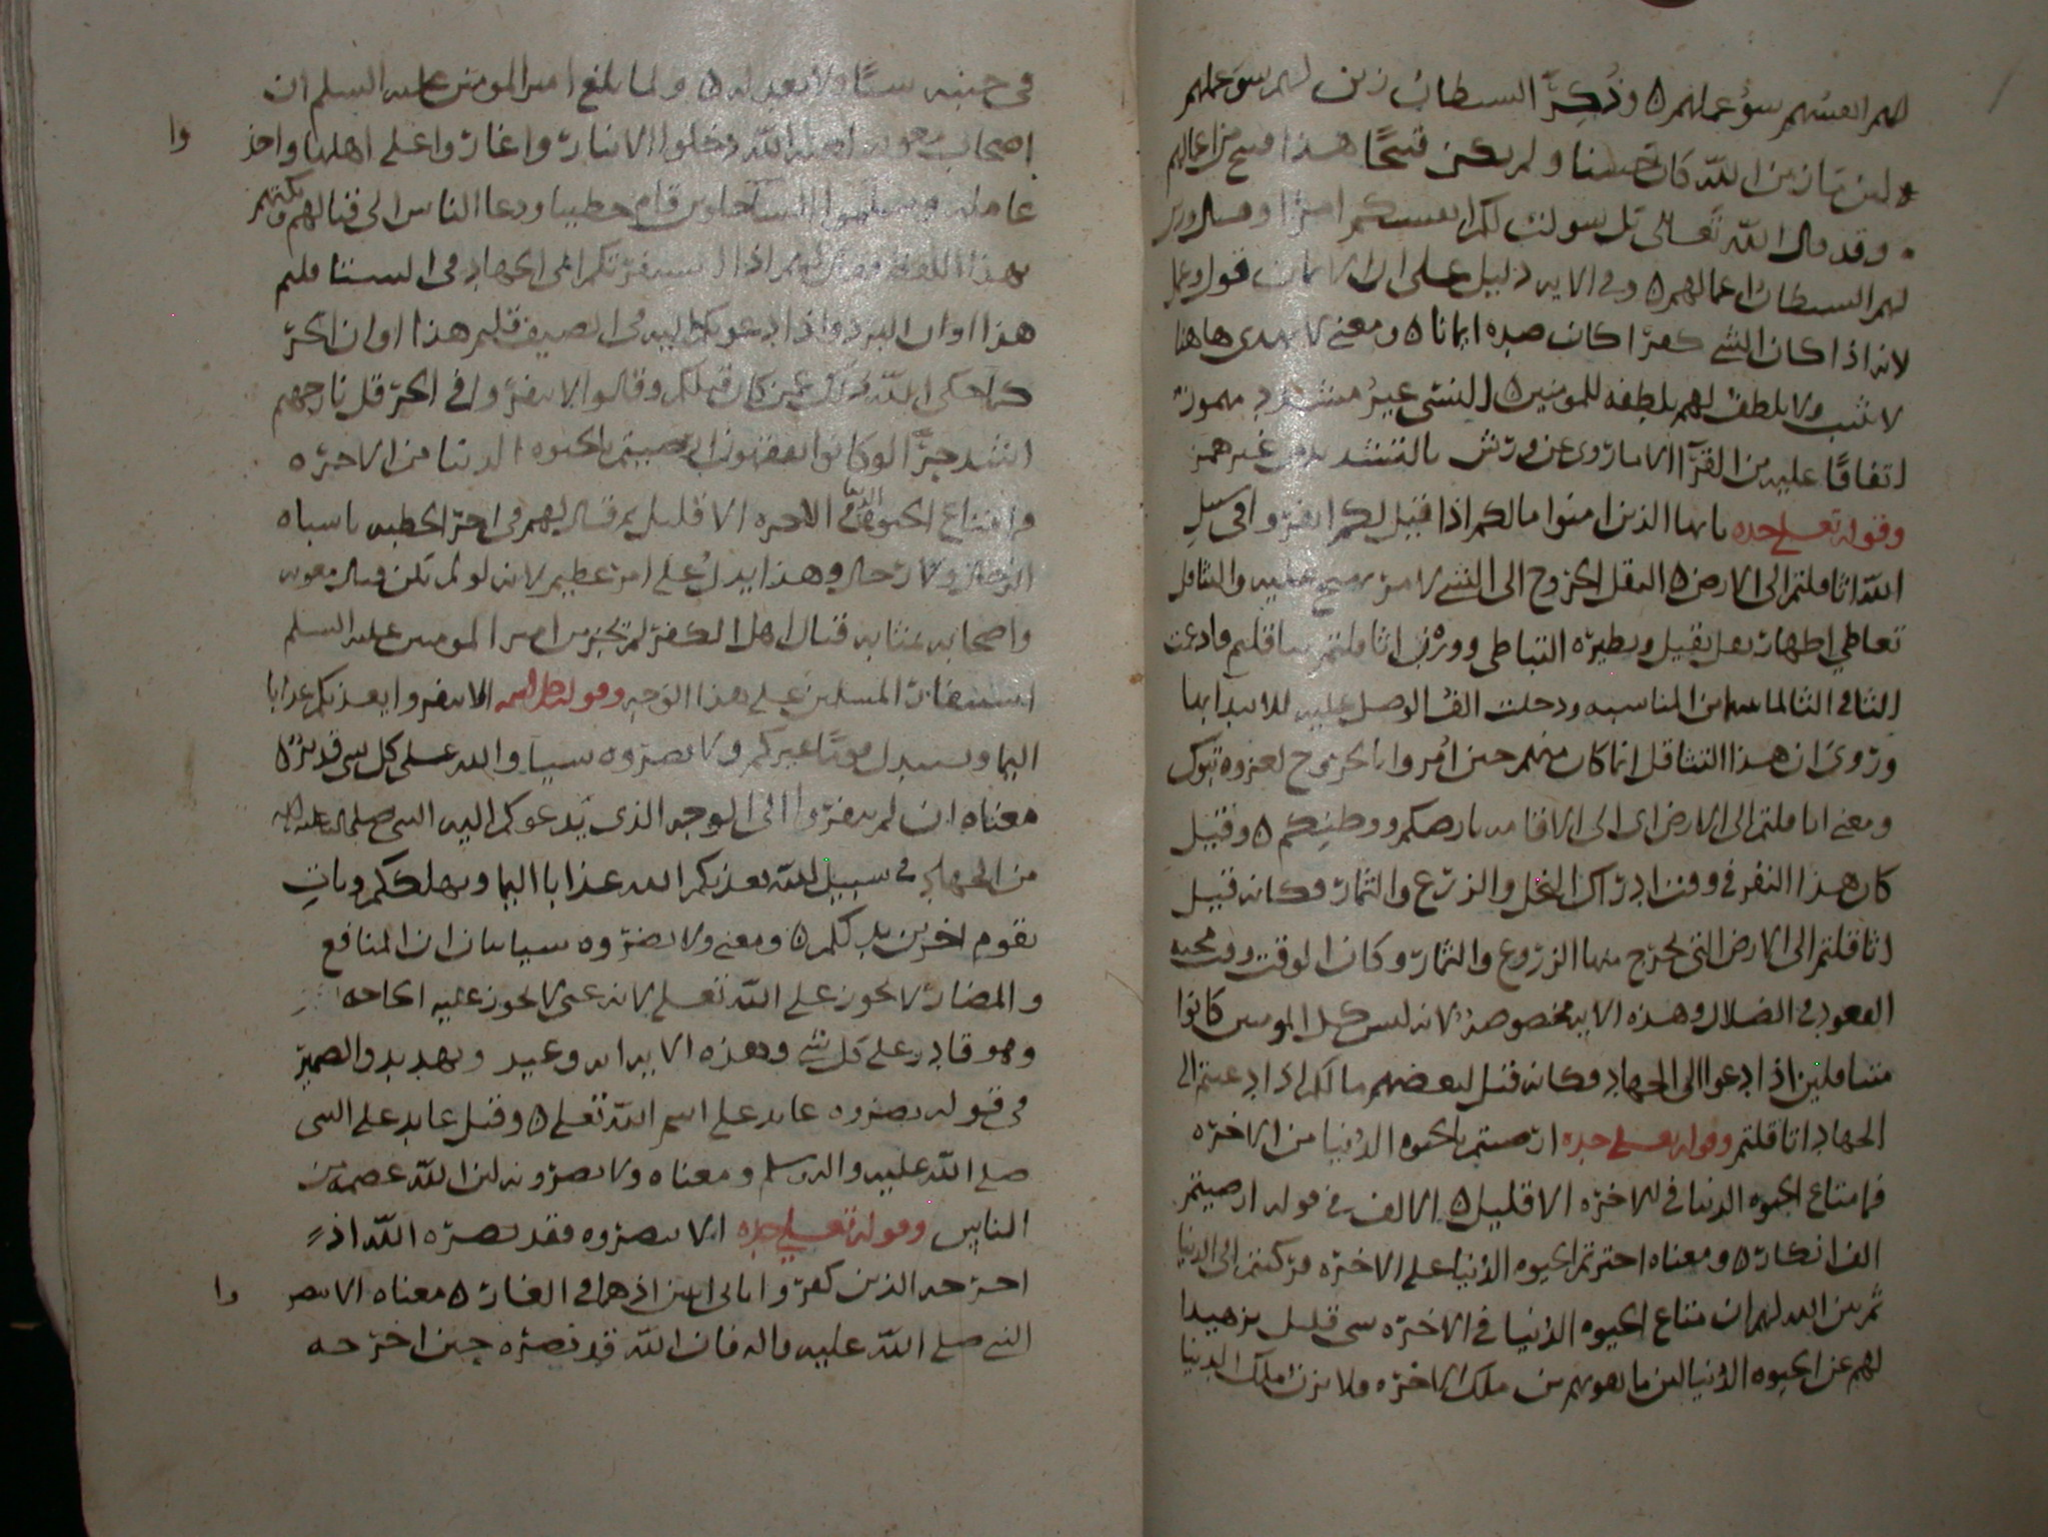 لهم انفسهم سوُ عملهم ه وذُكِرَ ان الشيطان زين لهم سوَ عملهم
لان ما زين الله كان حسنا ولم يكن قبيحًا هذا قبيح من اعمالهم
وقد قال الله تعالى بل سولت لكم انفسكم امرًا وقال وزين
لهم الشيطان اعمالهم ه وفي الايه دليل على ان الايمان قول وعمل
لانه اذا كان الشي كفرًا كان ضده ايمانا ه ومعنى لا يهدي هاهنا
لا يثيب ولا يلطف لهم بلطفه للمومنين ه النسي غيرُ مشدد مهموز
اتفاقًا عليه من القرَّا الا ما روى عن ورش بالتشديد من غير همز
وقوله تعالى جده يا ايها الذين امنوا ما لكم اذا قيل لكم انفروا في سبيل
الله اثاقلتم الى الارض ه النفر الخروج الى الشي لامر يهيج عليه والتثاقل
تعاطي اظهار ثقل يقيل ونظيره التباطي ووزن اثاقلتم تثاقلتم فادغمت
التا في الثا لما بينهما من المناسبه ودخلت الفُ الوصل عليه للابتدا بها
ورُوىَ ان هذا التثاقل انما كان منهم حين اُمروا بالخروج لغزوه تبوك
ومعنى اثاقلتم الى الارض اى الى الاقامه بارضكم ووطنكم ه وقيل
كان هذا النفر في وقت ادراك النخل والزرع والثمار فكانه قيل
اثاقلتم الى الارض التي يخرج منها الزروع والثمار وكان الوقت وقت محبه
القعود في الضلال وهذه الايه مخصوصهُ لانه ليس كل المومنين كانوا
متثاقلين اذا دعوا الى الجهاد فكانه قيل لبعضهم ما لكم اذا دعيتم الى
الجهاد اثاقلتم وقوله تعالى جده ارضيتم بالحيوه الدُنيا من الاخره
فما متاع الحيوه الدنيا في الاخره الا قليل ه الالف في قوله ارضيتم
الف انكار ه ومعناه اخترتم الحيوه الدُنيا على الاخره فركنتم الى الدنيا
ثم بين الله لهم ان متاع الحيوه الدُنيا في الاخره شي قليل تزهيدا
لهم عن الحيوه الدُنيا لان ما يفوتهم من ملك الاخره ولا يزن ملك الدنيا
في جنبه شيًا ولا يعدله ه ولما بلغ امير المومنين عليه السلم ان
اصحاب معويه لعنه الله دخلوا الانبار واغاروا على اهلها واخذ
وا
عامله وسلموا قام خطيبا ودعا الناس الى قتالهم وبكتهم
بهذا اللفظ فقال لهم اذا استنفرتكم الى الجهاد في الشتا قلتم
هذا اوان البرد واذا ادعوكم اليه في الصيف قلتم هذا اوان الحرّ
كما حكى الله عمن كان قبلكم وقالوا لا تنفروا في الحر قل نار جهنم
اشد حرًّا لو كانوا يفقهون ارضيتم بالحيوه الدنيا من الاخره
فما متاع الحيوه الدنيا في الاخره الا قليل ثم قال لهم في اخر الخطبه يا اشباه
الرجال ولا رجال وهذا يدلُ على امر عظيم لانه لو لم تكن قتال معويه
واصحابه بمثابه قتال اهل الكفر لم تجز من امير المومنين عليه السلم
استنفار المسلمين على هذا الوجه وقوله جل اسمه الا تنفروا يعذبكم عذابا
اليما ويستبدل قومًا غيركم ولا تضروه شيا والله على كل شي قدير ه
معناه ان لم تنفروا الى الوجه الذي يدعوكم اليه النبي صلى الله عليه واله
من الجهاد في سبيل الله يعذبكم الله عذابا اليما ويهلككم ويات
بقوم اخرين بدلكم ه ومعنى ولا تضروه شيا بيان ان المنافع
والمضار لا يجوز على الله تعالى لانه غنى لا يجوز عليه الحاجه
وهو قادر على كل شي وهذه الايه وعيد وتهديد والضمير
في قوله تضروه عايد على اسم الله تعالى ه وقيل عايد على النبي
صلى الله عليه واله وسلم ومعناه ولا تضرونه لان الله عصمه من
الناس وقوله تعالى جده الا تنصروه فقد نصره الله اذ
اخرجه الذين كفروا ثاني اثنين اذ هما في الغار ه معناه الا تنصر
وا
النبي صلى الله عليه واله فان الله قد نصره حين اخرجه